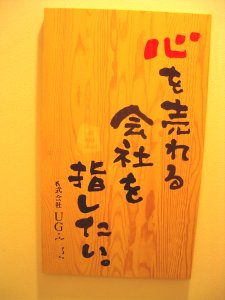 心を売れる
会社を
指したい。
株式会社
UG